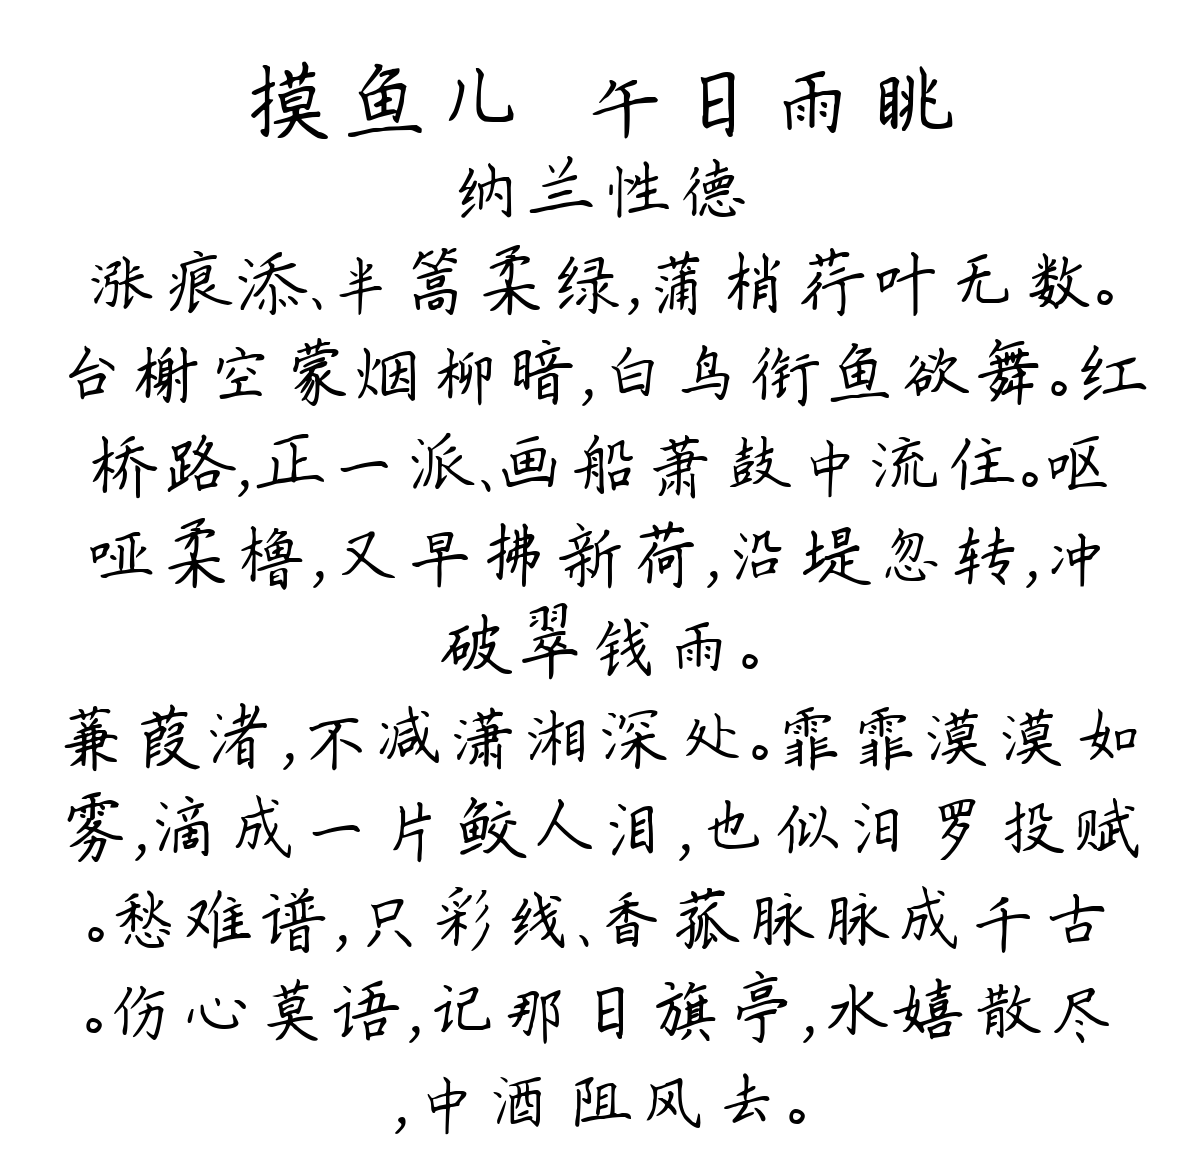 摸鱼儿 午日雨眺
纳兰性德
涨痕添、半篙柔绿,蒲梢荇叶无数。
台榭空蒙烟柳暗,白鸟衔鱼欲舞。红
桥路,正一派、画船萧鼓中流住。呕
哑柔橹,又早拂新荷,沿堤忽转,冲
破翠钱雨。
蒹葭渚,不减潇湘深处。霏霏漠漠如
雾,滴成一片鲛人泪,也似汨罗投赋
。愁难谱,只彩线、香菰脉脉成千古
。伤心莫语,记那日旗亭,水嬉散尽
,中酒阻风去。